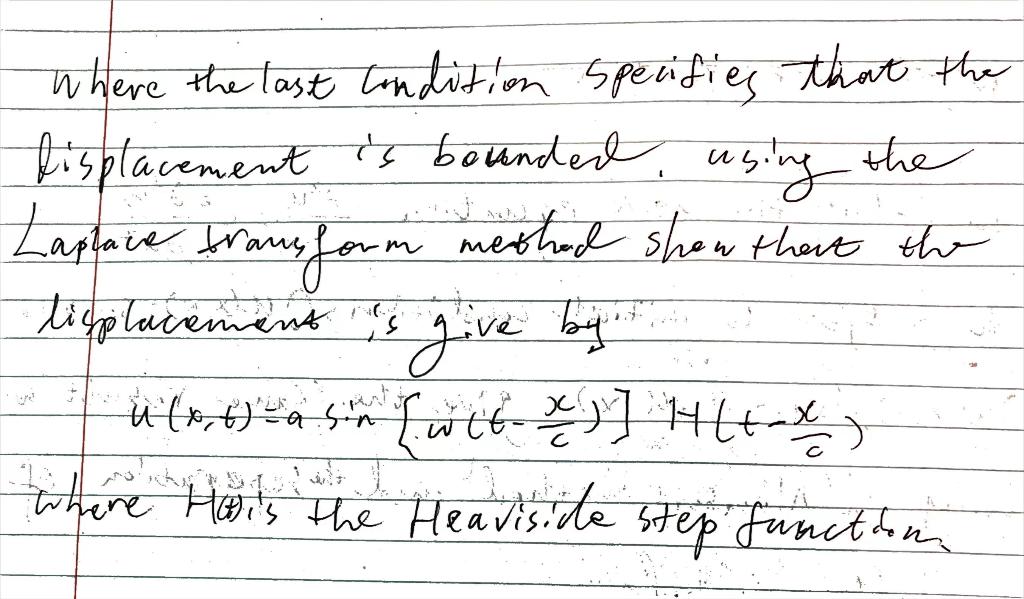 where the last Condition specifies that the
displacement is bounded. using the
Laplace transform method show that the
displacement is give by
u(x,t)=a sin [w(t-x/c)] H(t-x/c)
where H(t) is the Heaviside step function.